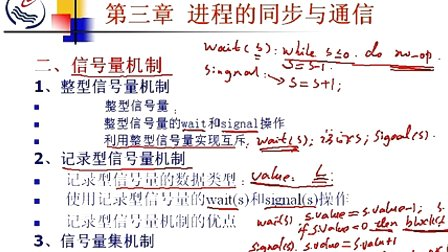 第三章 进程的同步与通信
wait(s): while s≤0 do no-op
s=s-1;
singnal:
s=s+1;
二、信号量机制
1、整型信号量机制
整型信号量：
整型信号量的wait和signal操作
利用整型信号量实现互斥 wait(s); 访问s; signal(s).
2、记录型信号量机制
记录型信号量的数据类型： value. L
使用记录型信号量的wait(s)和signal(s)操作
wait(s) s.value=s.value-1;
记录型信号量机制的优点
if s.value<0 then block(
signal(s). s.value=s.value+1
3、信号量集机制